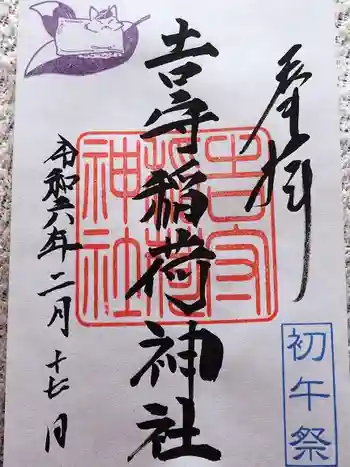 奉拝
吉守稲荷神社
吉守
稲荷
神社
令和六年二月十七日
初午祭